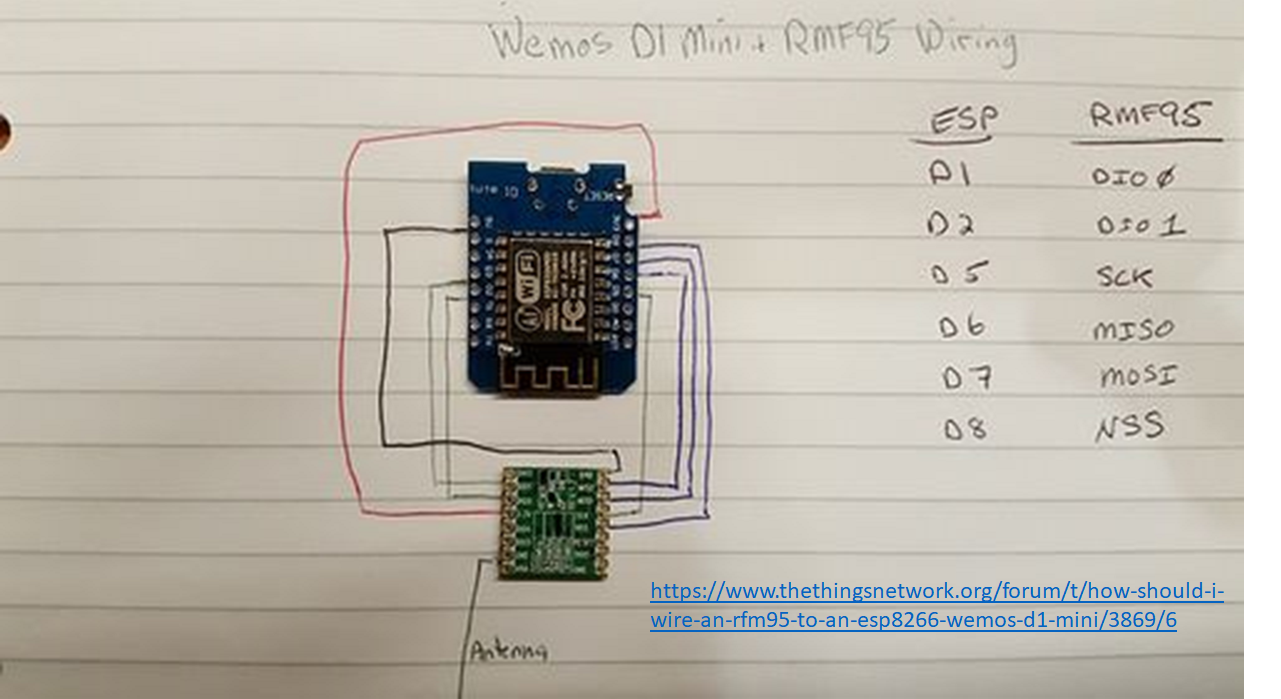 Wemos D1 Mini + RMF95 Wiring
ESP RMF95
D1 DIO0
D2 DIO1
D5 SCK
D6 MISO
D7 MOSI
D8 NSS
RESET
WiFi
FC
https://www.thethingsnetwork.org/forum/t/how-should-i-
wire-an-rfm95-to-an-esp8266-wemos-d1-mini/3869/6
Antenna